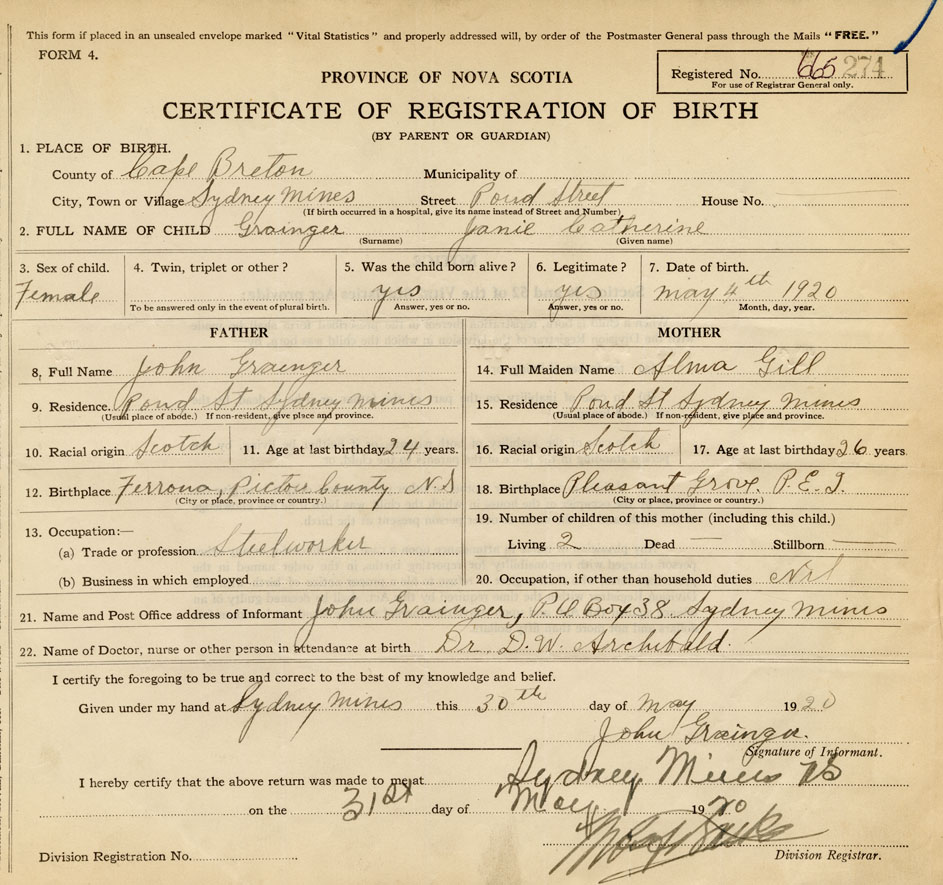 This form if placed in an unsealed envelope marked "Vital Statistics" and properly addressed will, by order of the Postmaster General pass through the Mails "FREE."
FORM 4.
Registered No. 665 274
For use of Registrar General only.
PROVINCE OF NOVA SCOTIA
CERTIFICATE OF REGISTRATION OF BIRTH
(BY PARENT OR GUARDIAN)
1. PLACE OF BIRTH.
County of Cape Breton Municipality of
City, Town or Village Sydney Mines Street Pond Street House No.
(If birth occurred in a hospital, give its name instead of Street and Number)
2. FULL NAME OF CHILD Grainger Janie Catherine
(Surname) (Given name)
3. Sex of child. 4. Twin, triplet or other? 5. Was the child born alive? 6. Legitimate? 7. Date of birth.
Female yes yes May 4th 1920
To be answered only in the event of plural birth. Answer, yes or no. Answer, yes or no. Month, day, year.
FATHER MOTHER
8, Full Name John Grainger 14. Full Maiden Name Alma Gill
9. Residence. Pond St Sydney Mines 15. Residence Pond St Sydney Mines
(Usual place of abode.) If non-resident, give place and province. (Usual place of abode.) If non-resident, give place and province.
10. Racial origin Scotch 11. Age at last birthday 24 years. 16. Racial origin Scotch 17. Age at last birthday 26 years.
12. Birthplace Ferrona, Pictou County N.S 18. Birthplace Pleasant Grove. P.E.I.
(City or place, province or country.) (City or place, province or country.)
13. Occupation:— 19. Number of children of this mother (including this child.)
(a) Trade or profession Steelworker Living 2 Dead — Stillborn —
(b) Business in which employed 20. Occupation, if other than household duties Nil
21. Name and Post Office address of Informant John Grainger, P.O Box 38 Sydney Mines
22. Name of Doctor, nurse or other person in attendance at birth Dr. D.W. Archibald.
I certify the foregoing to be true and correct to the best of my knowledge and belief.
Given under my hand at Sydney Mines this 30th day of May 1920
John Grainger.
Signature of Informant.
I hereby certify that the above return was made to me at Sydney Mines NS
on the 31st day of May 1920
Division Registration No. Division Registrar.